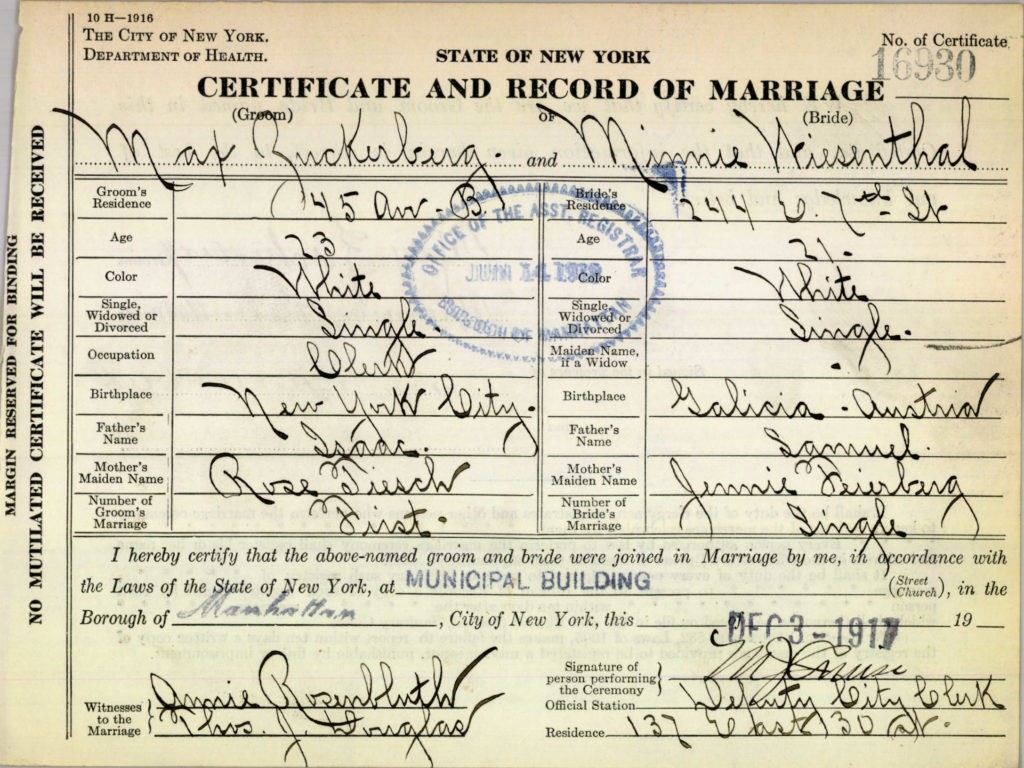 10 H—1916
THE CITY OF NEW YORK.
DEPARTMENT OF HEALTH.
STATE OF NEW YORK
No. of Certificate
16930
CERTIFICATE AND RECORD OF MARRIAGE
(Groom) OF (Bride)
Max Zuckerberg. and Minnie Wiesenthal
Groom's Residence 145 Ave B
Bride's Residence 244 E. 7th St
Age 23
Age 21.
Color White
Color White
Single, Widowed or Divorced Single.
Single, Widowed or Divorced Single.
Occupation Clerk
Maiden Name, if a Widow
Birthplace New York City.
Birthplace Galicia - Austria
Father's Name Isaac.
Father's Name Samuel.
Mother's Maiden Name Rose Tiesch
Mother's Maiden Name Jennie Feierberg
Number of Groom's Marriage First.
Number of Bride's Marriage Single
OFFICE OF THE ASST. REGISTRAR
JUN 14
BOROUGH OF MANHATTAN
I hereby certify that the above-named groom and bride were joined in Marriage by me, in accordance with
the Laws of the State of New York, at MUNICIPAL BUILDING (Street Church), in the
Borough of Manhattan, City of New York, this DEC 3 - 1917 19
Signature of person performing the Ceremony
Witnesses to the Marriage Annie Rosenbluth
Thos. J. Douglas
Official Station Deputy City Clerk
Residence 137 East 130 St.
MARGIN RESERVED FOR BINDING
NO MUTILATED CERTIFICATE WILL BE RECEIVED